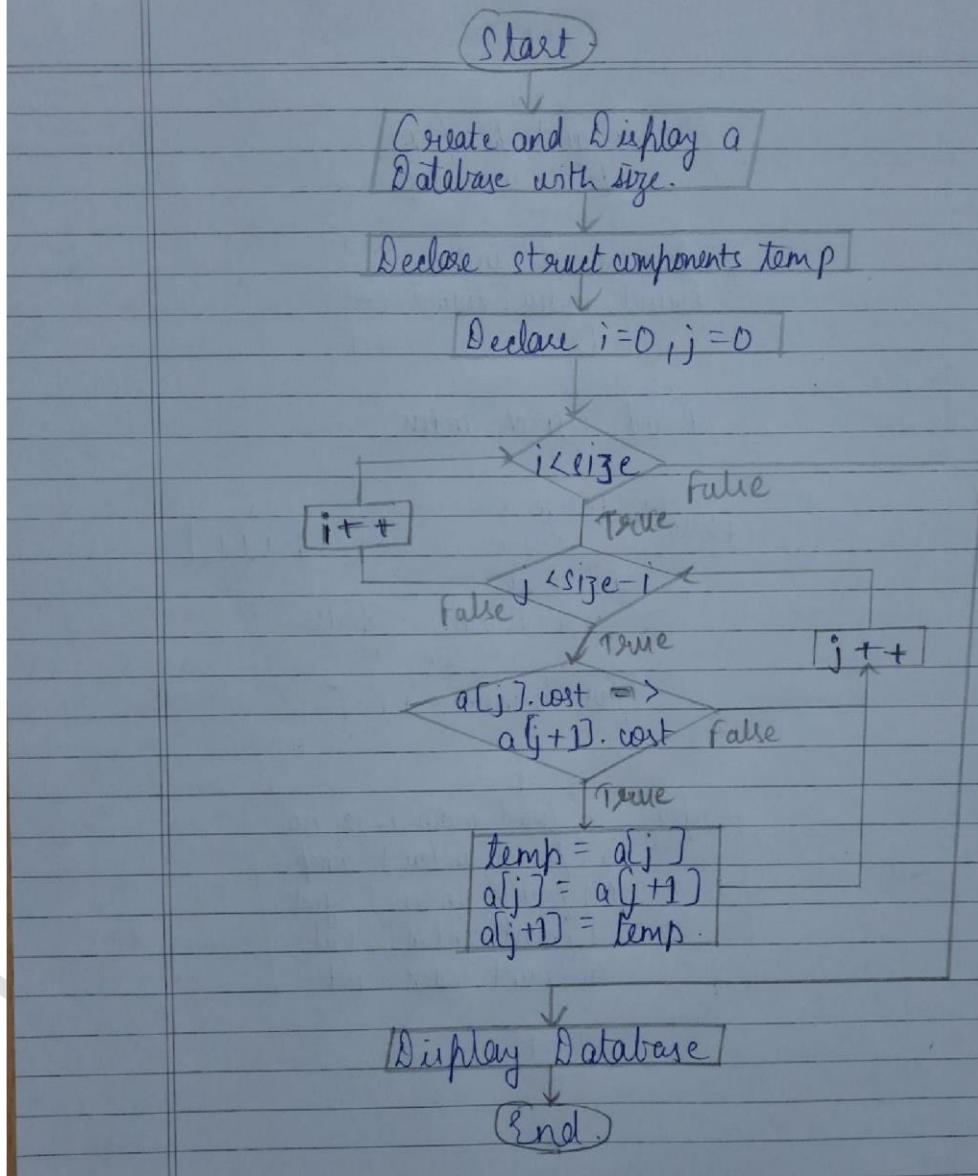 Start
Create and Display a
Database with size.
Declare struct components temp
Declare i=0, j=0
i<size
False
True
i++
j<size-i
False
True
j++
a[j].cost =>
a[j+1].cost
False
True
temp = a[j]
a[j] = a[j+1]
a[j+1] = temp.
Display Database
End.